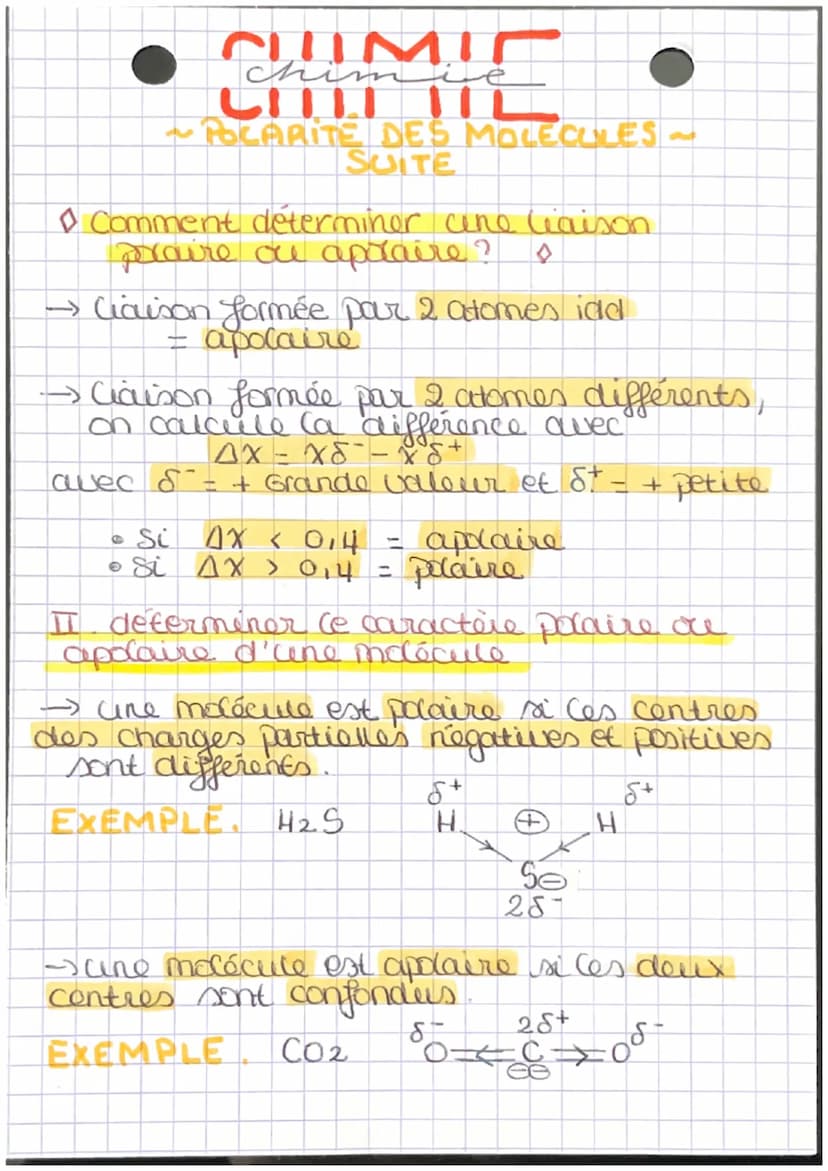 CHIMIE
chimie
~ POLARITÉ DES MOLÉCULES ~
SUITE
◊ Comment déterminer une liaison
polaire ou apolaire ? ◊
→ Liaison formée par 2 atomes idd
= apolaire
→ Liaison formée par 2 atomes différents,
on calcule la différence avec
Δχ = χδ⁻ − χδ⁺
avec δ⁻ = + Grande valeur et δ⁺ = + petite
• Si Δχ < 0,4 = apolaire
• Si Δχ > 0,4 = polaire
II. déterminer le caractère polaire ou
apolaire d'une molécule
→ une molécule est polaire si les centres
des charges partielles négatives et positives
sont différents.
δ⁺ δ⁺
EXEMPLE. H2S H ⊕ H
S⊖
2δ⁻
→ une molécule est apolaire si les deux
centres sont confondus.
δ⁻ 2δ⁺ δ⁻
EXEMPLE. CO2 O=C=O
⊖⊕